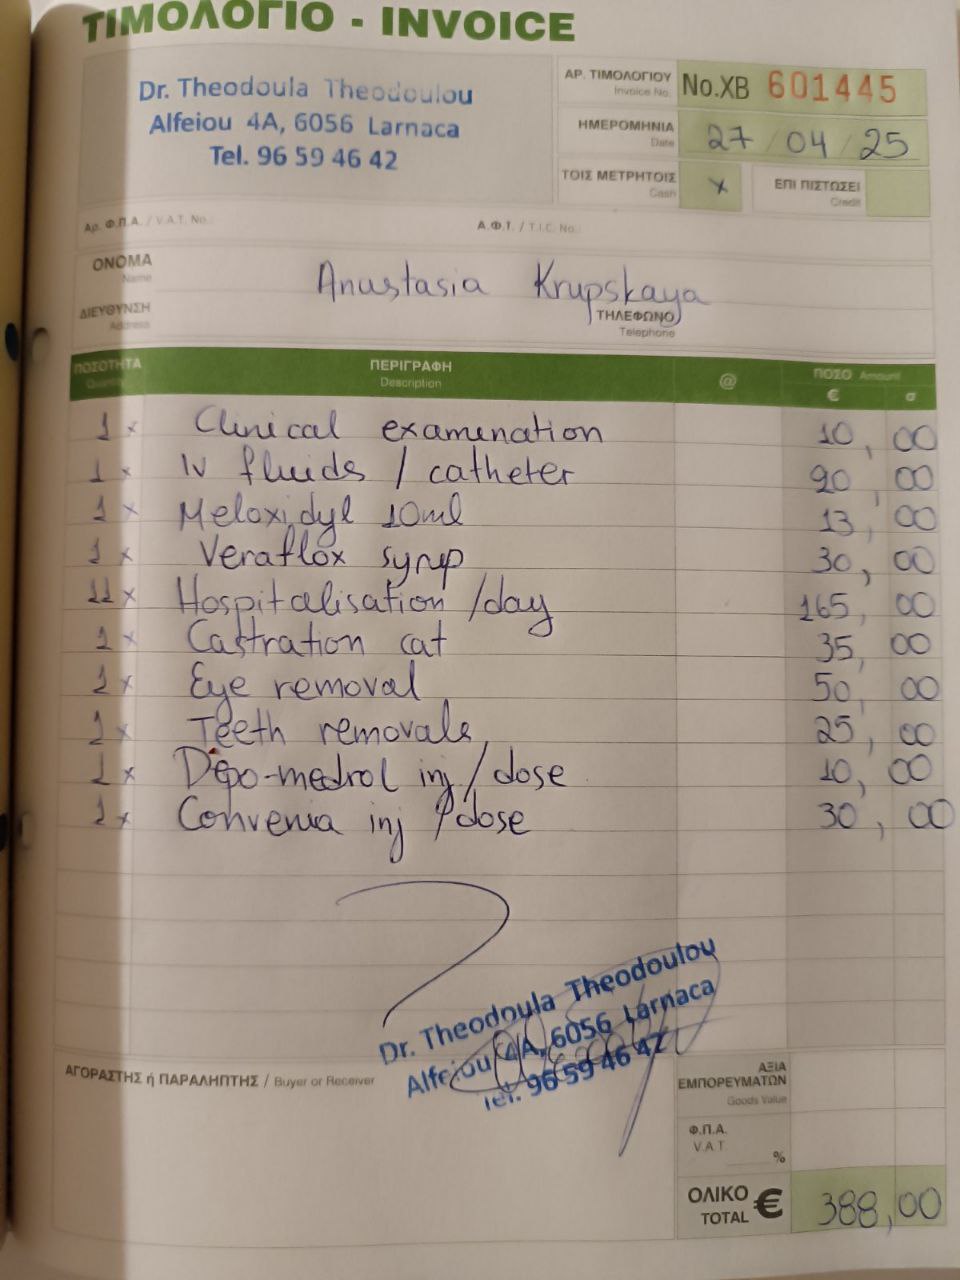 ΤΙΜΟΛΟΓΙΟ - INVOICE
Dr. Theodoula Theodoulou
Alfeiou 4A, 6056 Larnaca
Tel. 96 59 46 42
ΑΡ. ΤΙΜΟΛΟΓΙΟΥ No.XB 601445
Invoice No.
ΗΜΕΡΟΜΗΝΙΑ 27 / 04 / 25
Date
ΤΟΙΣ ΜΕΤΡΗΤΟΙΣ x ΕΠΙ ΠΙΣΤΩΣΕΙ
Cash Credit
Αρ. Φ.Π.Α. / V.A.T. No.: Α.Φ.Τ. / T.I.C. No.:
ΟΝΟΜΑ Anastasia Krupskaya
Name
ΔΙΕΥΘΥΝΣΗ ΤΗΛΕΦΩΝΟ
Address Telephone
ΠΟΣΟΤΗΤΑ ΠΕΡΙΓΡΑΦΗ @ ΠΟΣΟ Amount
Quantity Description € σ
1 x Clinical examination 10,00
1 x IV fluids / catheter 20,00
1 x Meloxidyl 10ml 13,00
1 x Veraflox syrup 30,00
11 x Hospitalisation /day 165,00
1 x Castration cat 35,00
1 x Eye removal 50,00
1 x Teeth removals 25,00
1 x Depo-medrol inj / dose 10,00
1 x Convenia inj /dose 30,00
Dr. Theodoula Theodoulou
Alfeiou 4A, 6056 Larnaca
Tel. 96 59 46 42
ΑΓΟΡΑΣΤΗΣ ή ΠΑΡΑΛΗΠΤΗΣ / Buyer or Receiver
ΑΞΙΑ
ΕΜΠΟΡΕΥΜΑΤΩΝ
Goods Value
Φ.Π.Α.
V.A.T. %
ΟΛΙΚΟ
TOTAL € 388,00